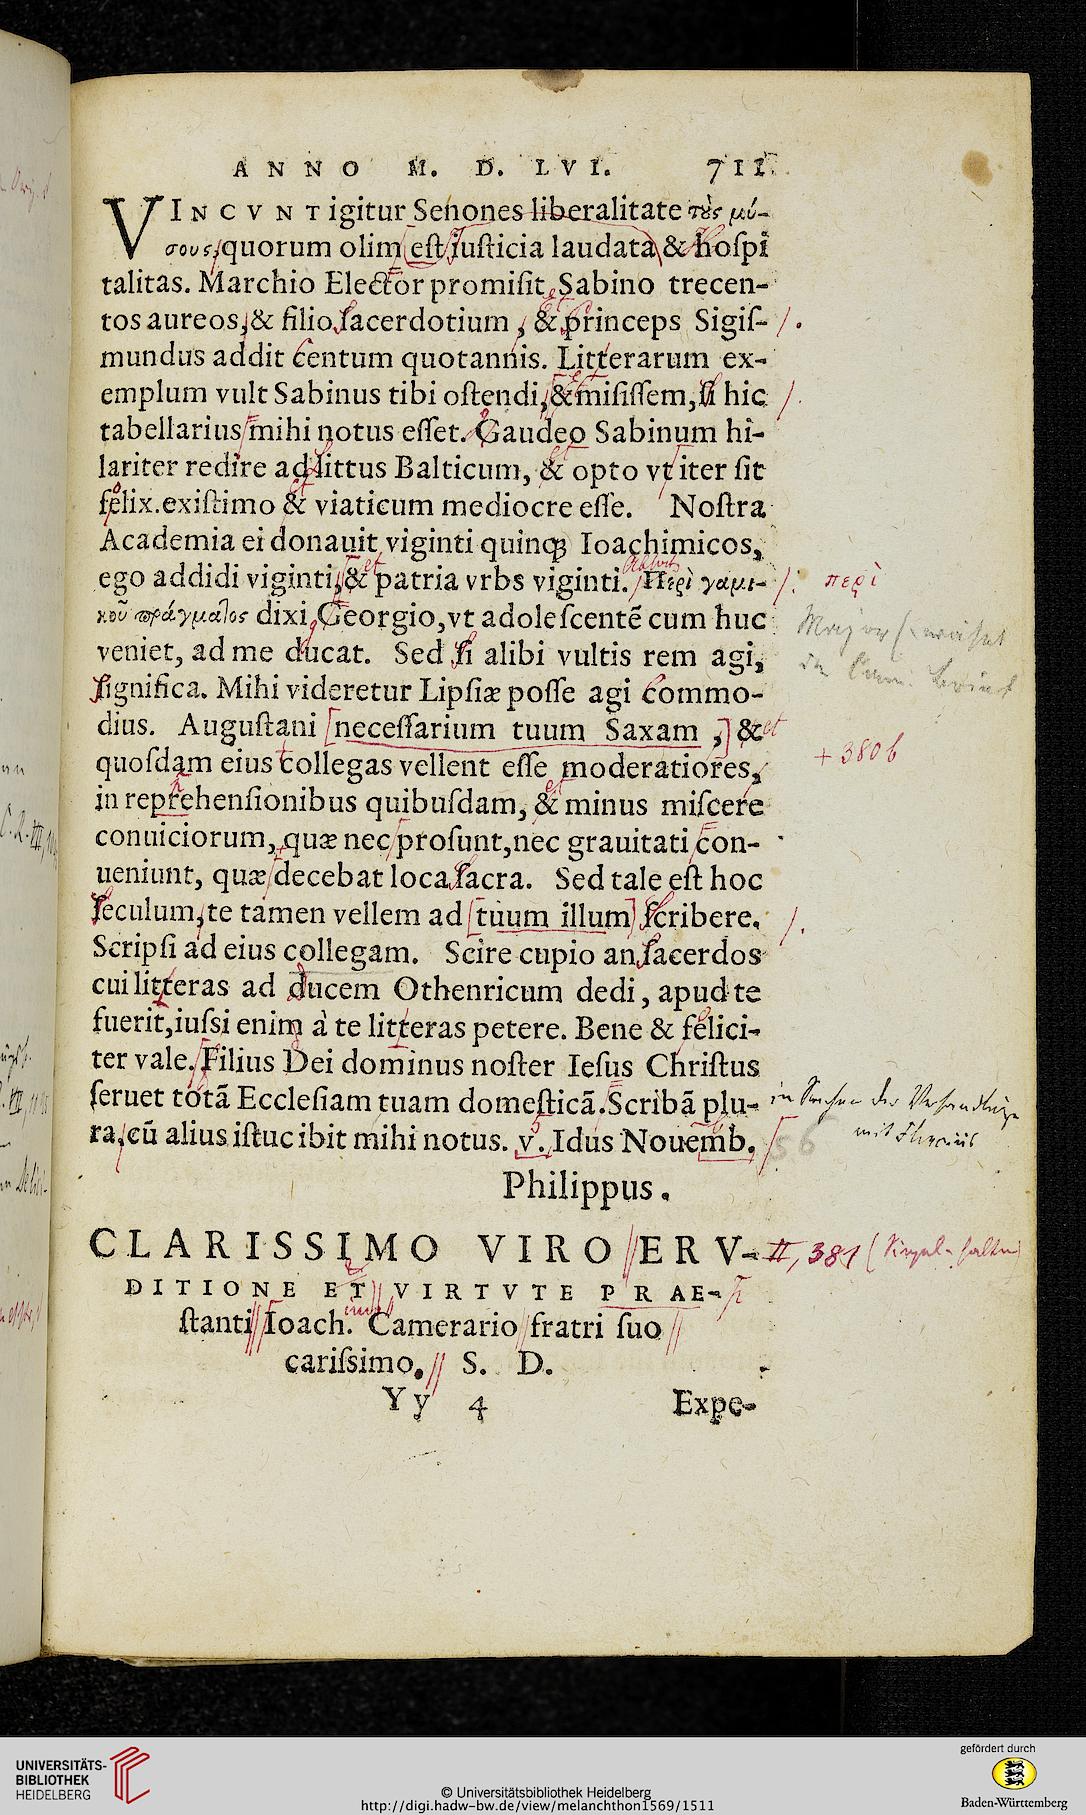 ANNO M. D. LVI. 711
VINCVNT igitur Senones liberalitate τοὺς μύ-
σους, quorum olim est iusticia laudata, & hospi
talitas. Marchio Elector promisit Sabino trecen-
tos aureos, & filio sacerdotium, & princeps Sigis-
mundus addit centum quotannis. Litterarum ex-
emplum vult Sabinus tibi ostendi, & misissem, si hic
tabellarius mihi notus esset. Gaudeo Sabinum hi-
lariter redire ad littus Balticum, & opto vt iter sit
felix. existimo & viaticum mediocre esse. Nostra
Academia ei donauit viginti quinqꝫ Ioachimicos,
ego addidi viginti, & patria vrbs viginti. Περὶ γαμι-
κοῦ πράγματος dixi Georgio, vt adolescentē cum huc
veniet, ad me ducat. Sed si alibi vultis rem agi,
significa. Mihi videretur Lipsiæ posse agi commo-
dius. Augustani necessarium tuum Saxam, &
quosdam eius collegas vellent esse moderatiores,
in reprehensionibus quibusdam, & minus miscere
conuiciorum, quæ nec prosunt, nec grauitati con-
ueniunt, quæ decebat loca sacra. Sed tale est hoc
seculum, te tamen vellem ad tuum illum scribere.
Scripsi ad eius collegam. Scire cupio an sacerdos
cui litteras ad ducem Othenricum dedi, apud te
fuerit, iussi enim à te litteras petere. Bene & felici-
ter vale. Filius Dei dominus noster Iesus Christus
seruet totā Ecclesiam tuam domesticā. Scribā plu-
ra, cū alius istuc ibit mihi notus. v. Idus Nouemb.
Philippus.
CLARISSIMO VIRO ERV-
DITIONE ET VIRTVTE PRAE-
stanti Ioach. Camerario fratri suo
carissimo. S. D.
Yy 4 Expe-
περὶ
+ 380b
II, 381
UNIVERSITÄTS-
BIBLIOTHEK
HEIDELBERG
© Universitätsbibliothek Heidelberg
http://digi.hadw-bw.de/view/melanchthon1569/1511
gefördert durch
Baden-Württemberg